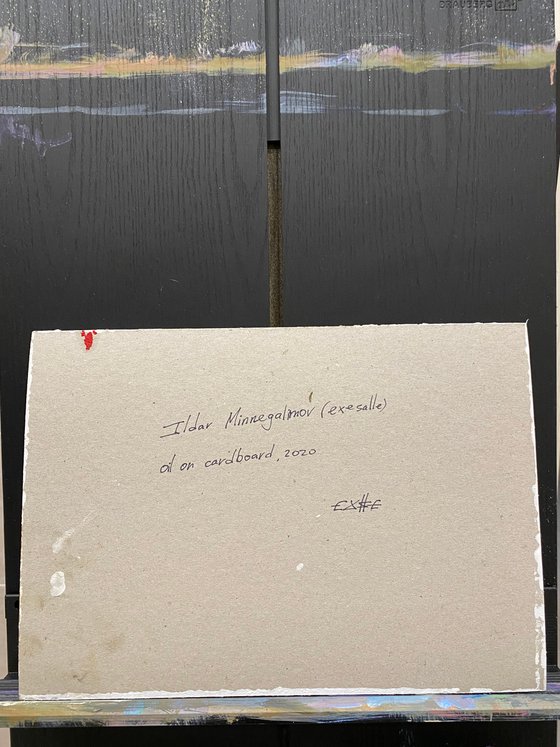 Ildar Minnegalimov (exesalle)
oil on cardboard, 2020